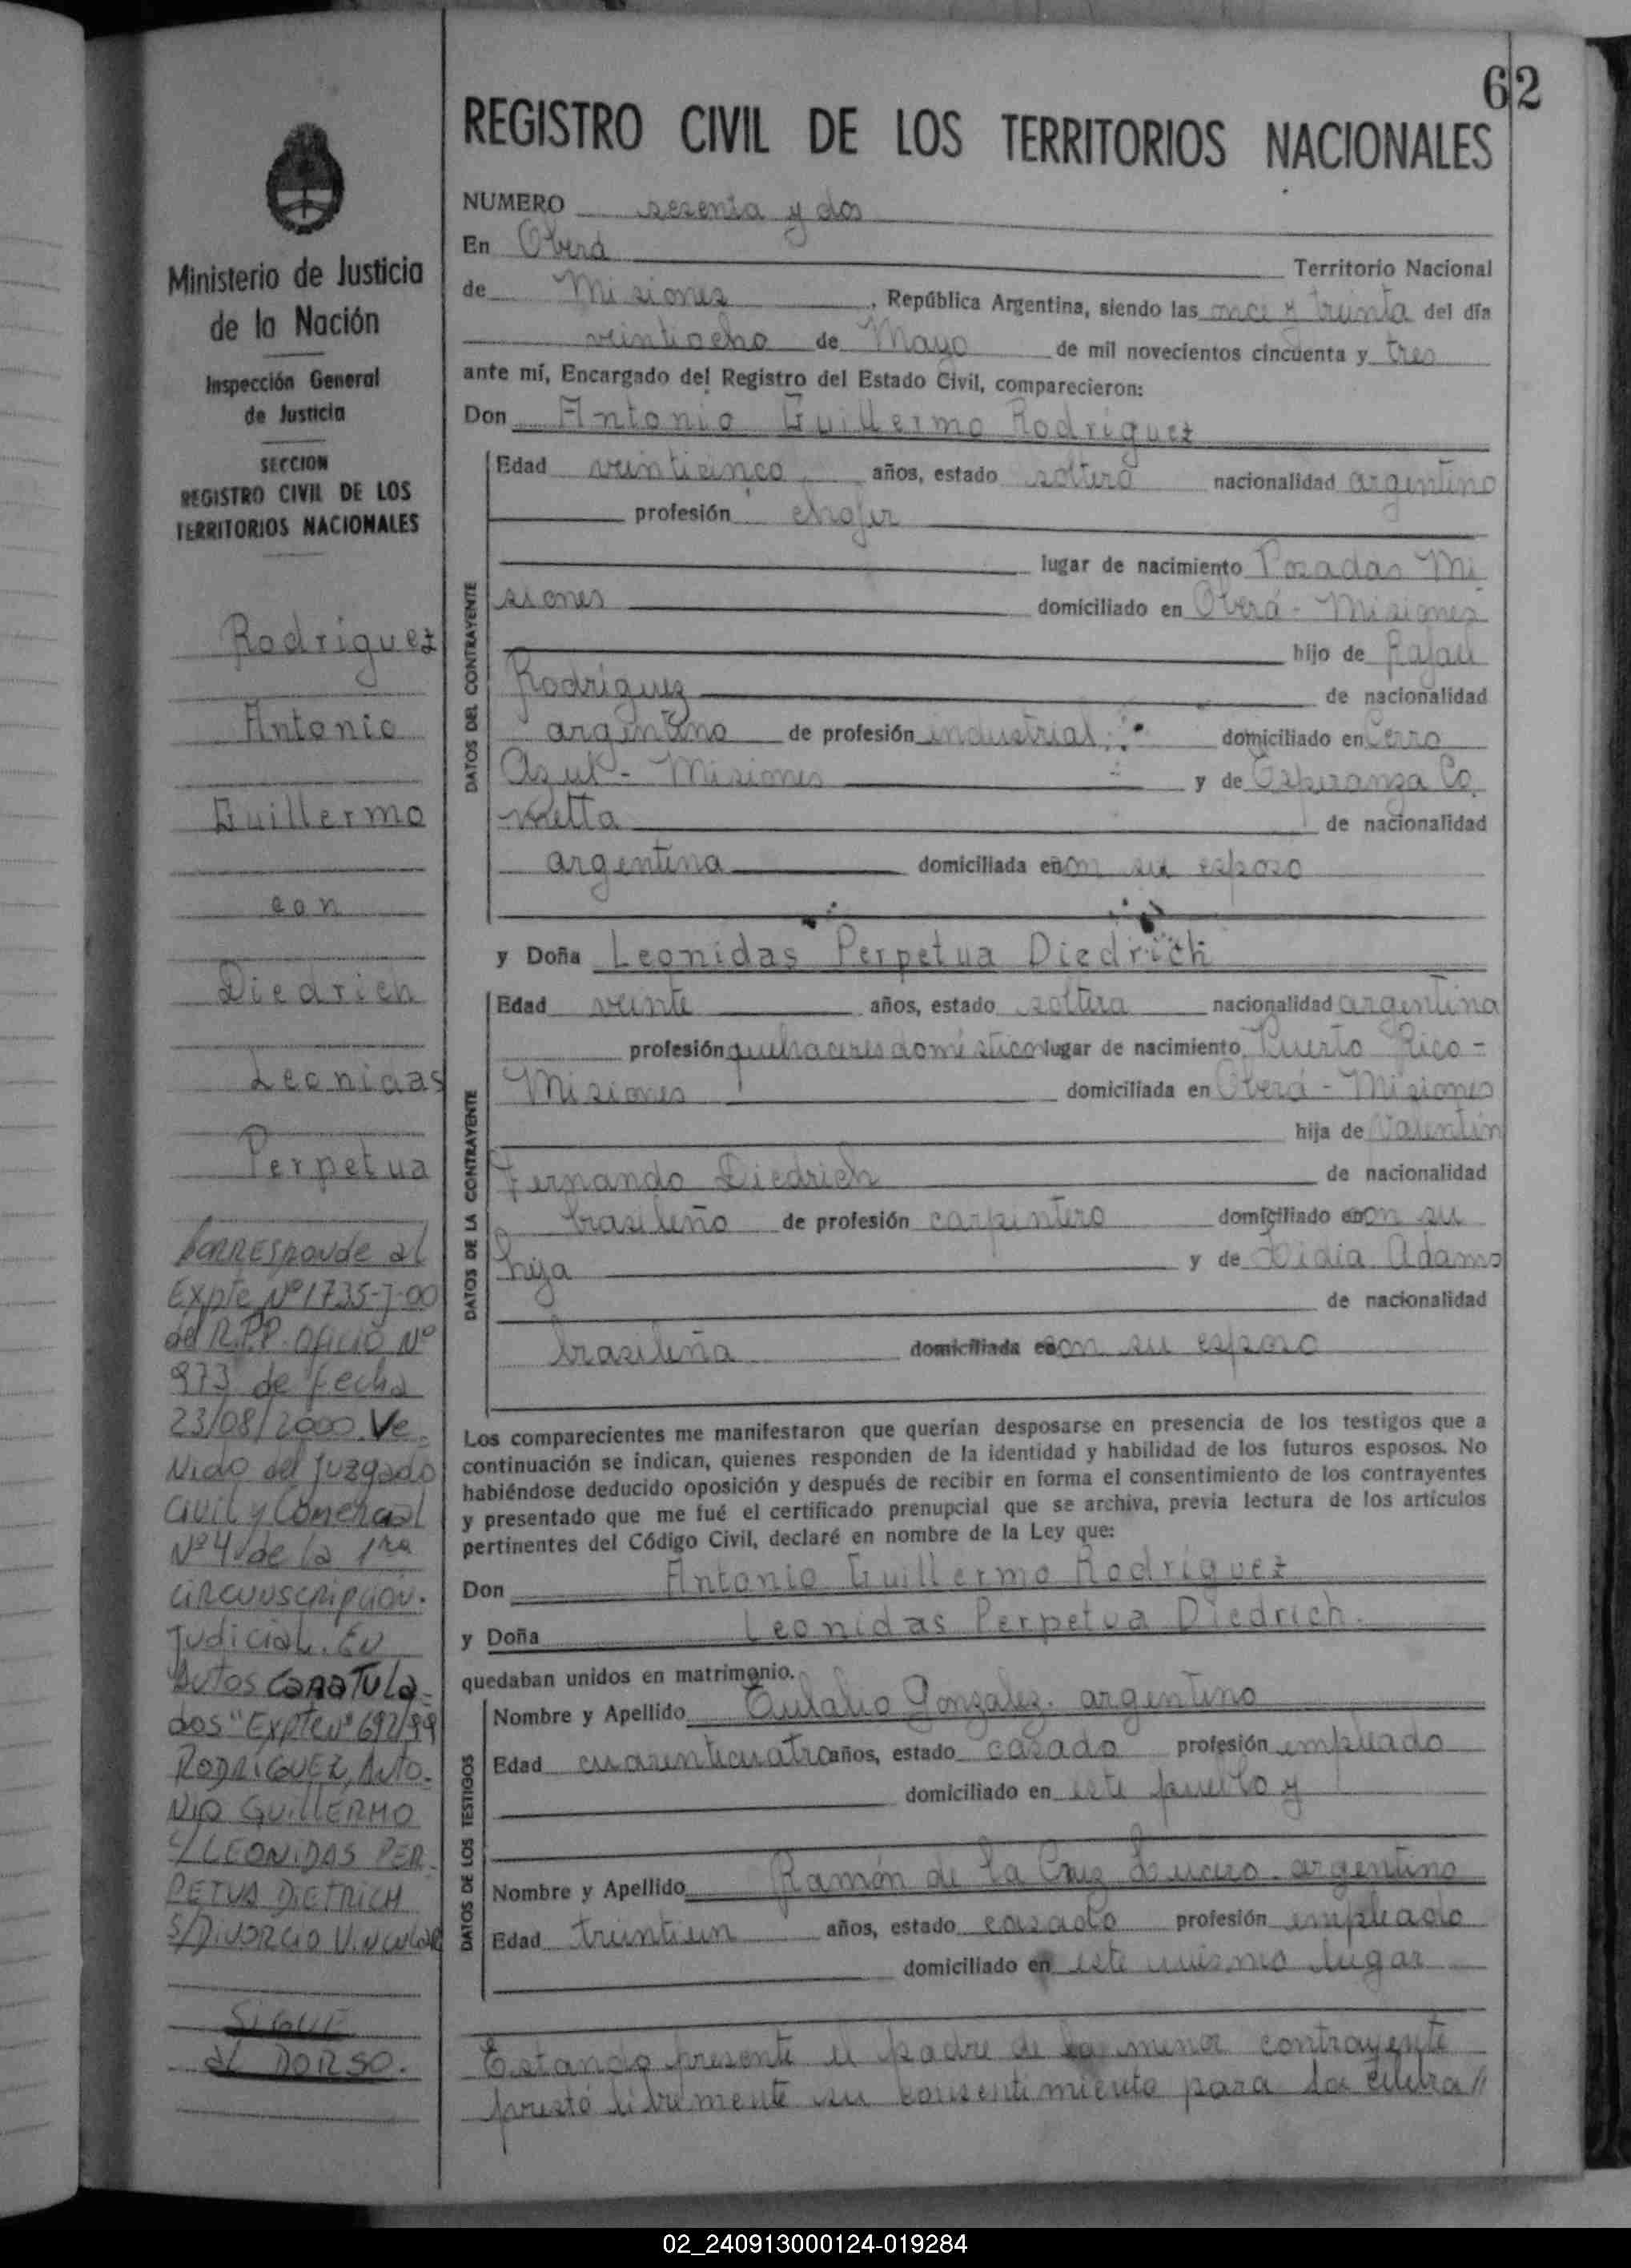 62
REGISTRO CIVIL DE LOS TERRITORIOS NACIONALES
Ministerio de Justicia
de la Nación
Inspección General
de Justicia
SECCION
REGISTRO CIVIL DE LOS
TERRITORIOS NACIONALES
Rodriguez
Antonio
Guillermo
con
Diedrich
Leonidas
Perpetua
CORRESponde al
Expte Nº 1735-J-00
del R.P.P. oficio Nº
973 de fecha
23/08/2000 Ve-
Nido del Juzgado
Civil y Comercial
Nº 4 de la 1ra
CIRCUNSCRIPCION.
Judicial. EN
Autos CARATULA-
dos "Expte Nº 692/99
RODRÍGUEZ, ANTO-
NIO GUILLERMO
C/ LEONIDAS PER-
PETUA DIETRICH
S/DIVORCIO VINCULAR
SIGUE
AL DORSO.
NUMERO sesenta y dos
En Oberá Territorio Nacional
de Misiones, República Argentina, siendo las once y treinta del día
veintiocho de Mayo de mil novecientos cincuenta y tres
ante mí, Encargado del Registro del Estado Civil, comparecieron:
Don Antonio Guillermo Rodríguez
DATOS DEL CONTRAYENTE
Edad veinticinco años, estado soltero nacionalidad argentino
profesión chofer
lugar de nacimiento Posadas Mi
siones domiciliado en Oberá - Misiones
hijo de Rafael
Rodríguez de nacionalidad
argentino de profesión industrial domiciliado en Cerro
Azul - Misiones y de Esperanza Co
rretta de nacionalidad
argentina domiciliada con su esposo
y Doña Leonidas Perpetua Diedrich
DATOS DE LA CONTRAYENTE
Edad veinte años, estado soltera nacionalidad argentina
profesión quehaceres domésticos lugar de nacimiento Puerto Rico -
Misiones domiciliada en Oberá - Misiones
hija de Valentín
Fernando Diedrich de nacionalidad
brasileño de profesión carpintero domiciliado con su
hija y de Lidia Adams
de nacionalidad
brasileña domiciliada con su esposo
Los comparecientes me manifestaron que querían desposarse en presencia de los testigos que a
continuación se indican, quienes responden de la identidad y habilidad de los futuros esposos. No
habiéndose deducido oposición y después de recibir en forma el consentimiento de los contrayentes
y presentado que me fué el certificado prenupcial que se archiva, previa lectura de los artículos
pertinentes del Código Civil, declaré en nombre de la Ley que:
Don Antonio Guillermo Rodríguez
y Doña Leonidas Perpetua Diedrich.
quedaban unidos en matrimonio.
DATOS DE LOS TESTIGOS
Nombre y Apellido Eulalio Gonzalez. argentino
Edad cuarenticuatro años, estado casado profesión empleado
domiciliado en este pueblo y
Nombre y Apellido Ramón de la Cruz Lucero. argentino
Edad treintiun años, estado casado profesión empleado
domiciliado en este mismo lugar
Estando presente el padre de la menor contrayente
prestó libremente su consentimiento para la celebra//
02_240913000124-019284